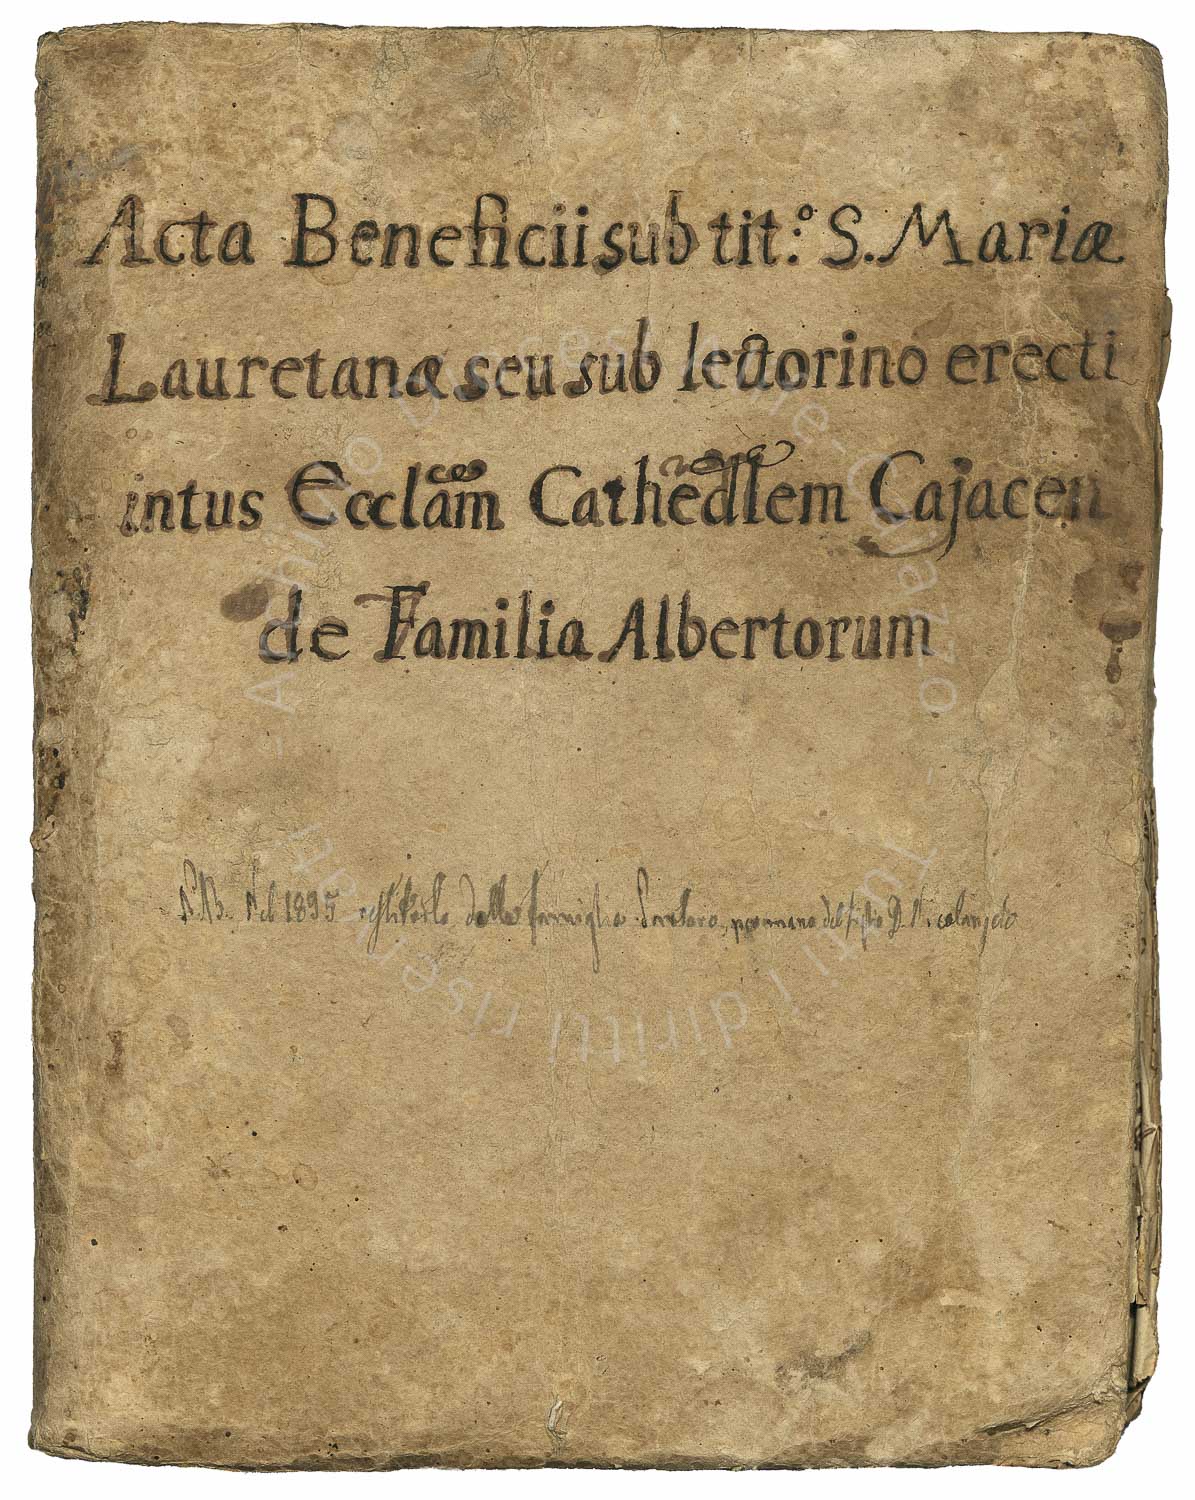 Acta Beneficii sub tit:º S. Mariæ
Lauretanæ seu sub lectorino erecti
intus Ecclãm Cathēdlem Cajacen
de Familia Albertorum
N.B. Nel 1895 dalla famiglia D. Nicolangelo
- Archivio Diocesi Alife-Caiazzo - Tutti i diritti riservati